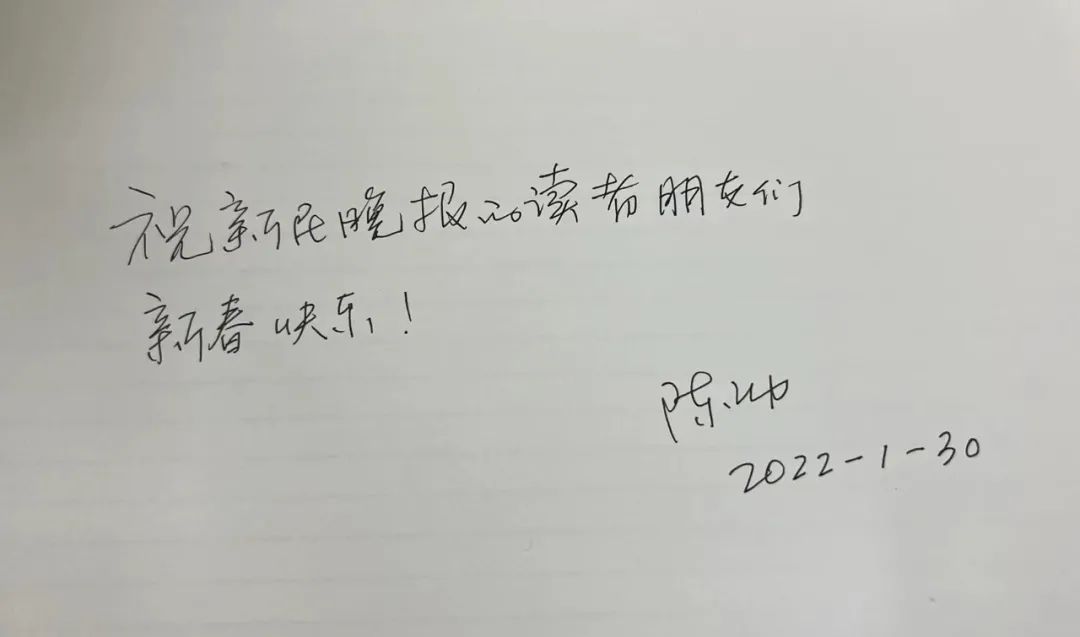 祝新民晚报的读者朋友们
新春快乐！
陈
2022-1-30